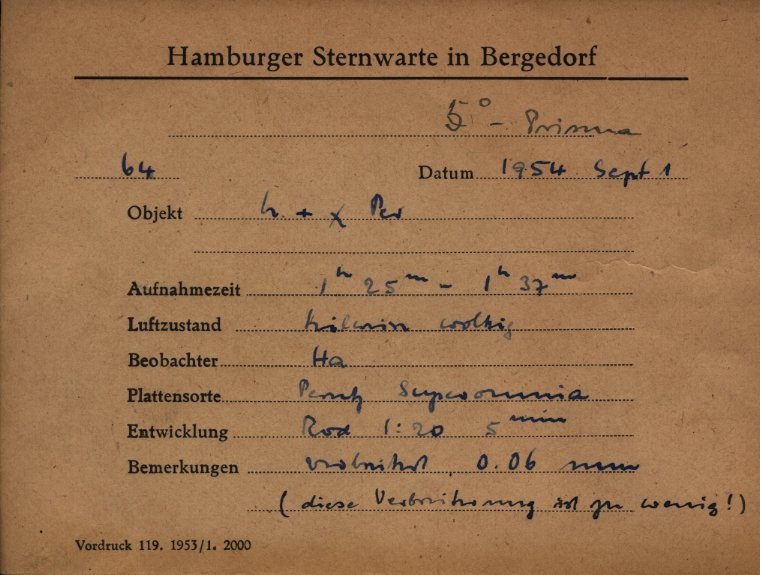 Hamburger Sternwarte in Bergedorf
5° - Prisma
64 Datum 1954 Sept 1
Objekt h + χ Per
Aufnahmezeit 1h 25m - 1h 37m
Luftzustand teilweise wolkig
Beobachter Ha
Plattensorte Perutz Superomnia
Entwicklung Rod 1:20 5 min
Bemerkungen verbreitert 0.06 mm
(diese Verbreiterung ist zu wenig!)
Vordruck 119. 1953/1. 2000